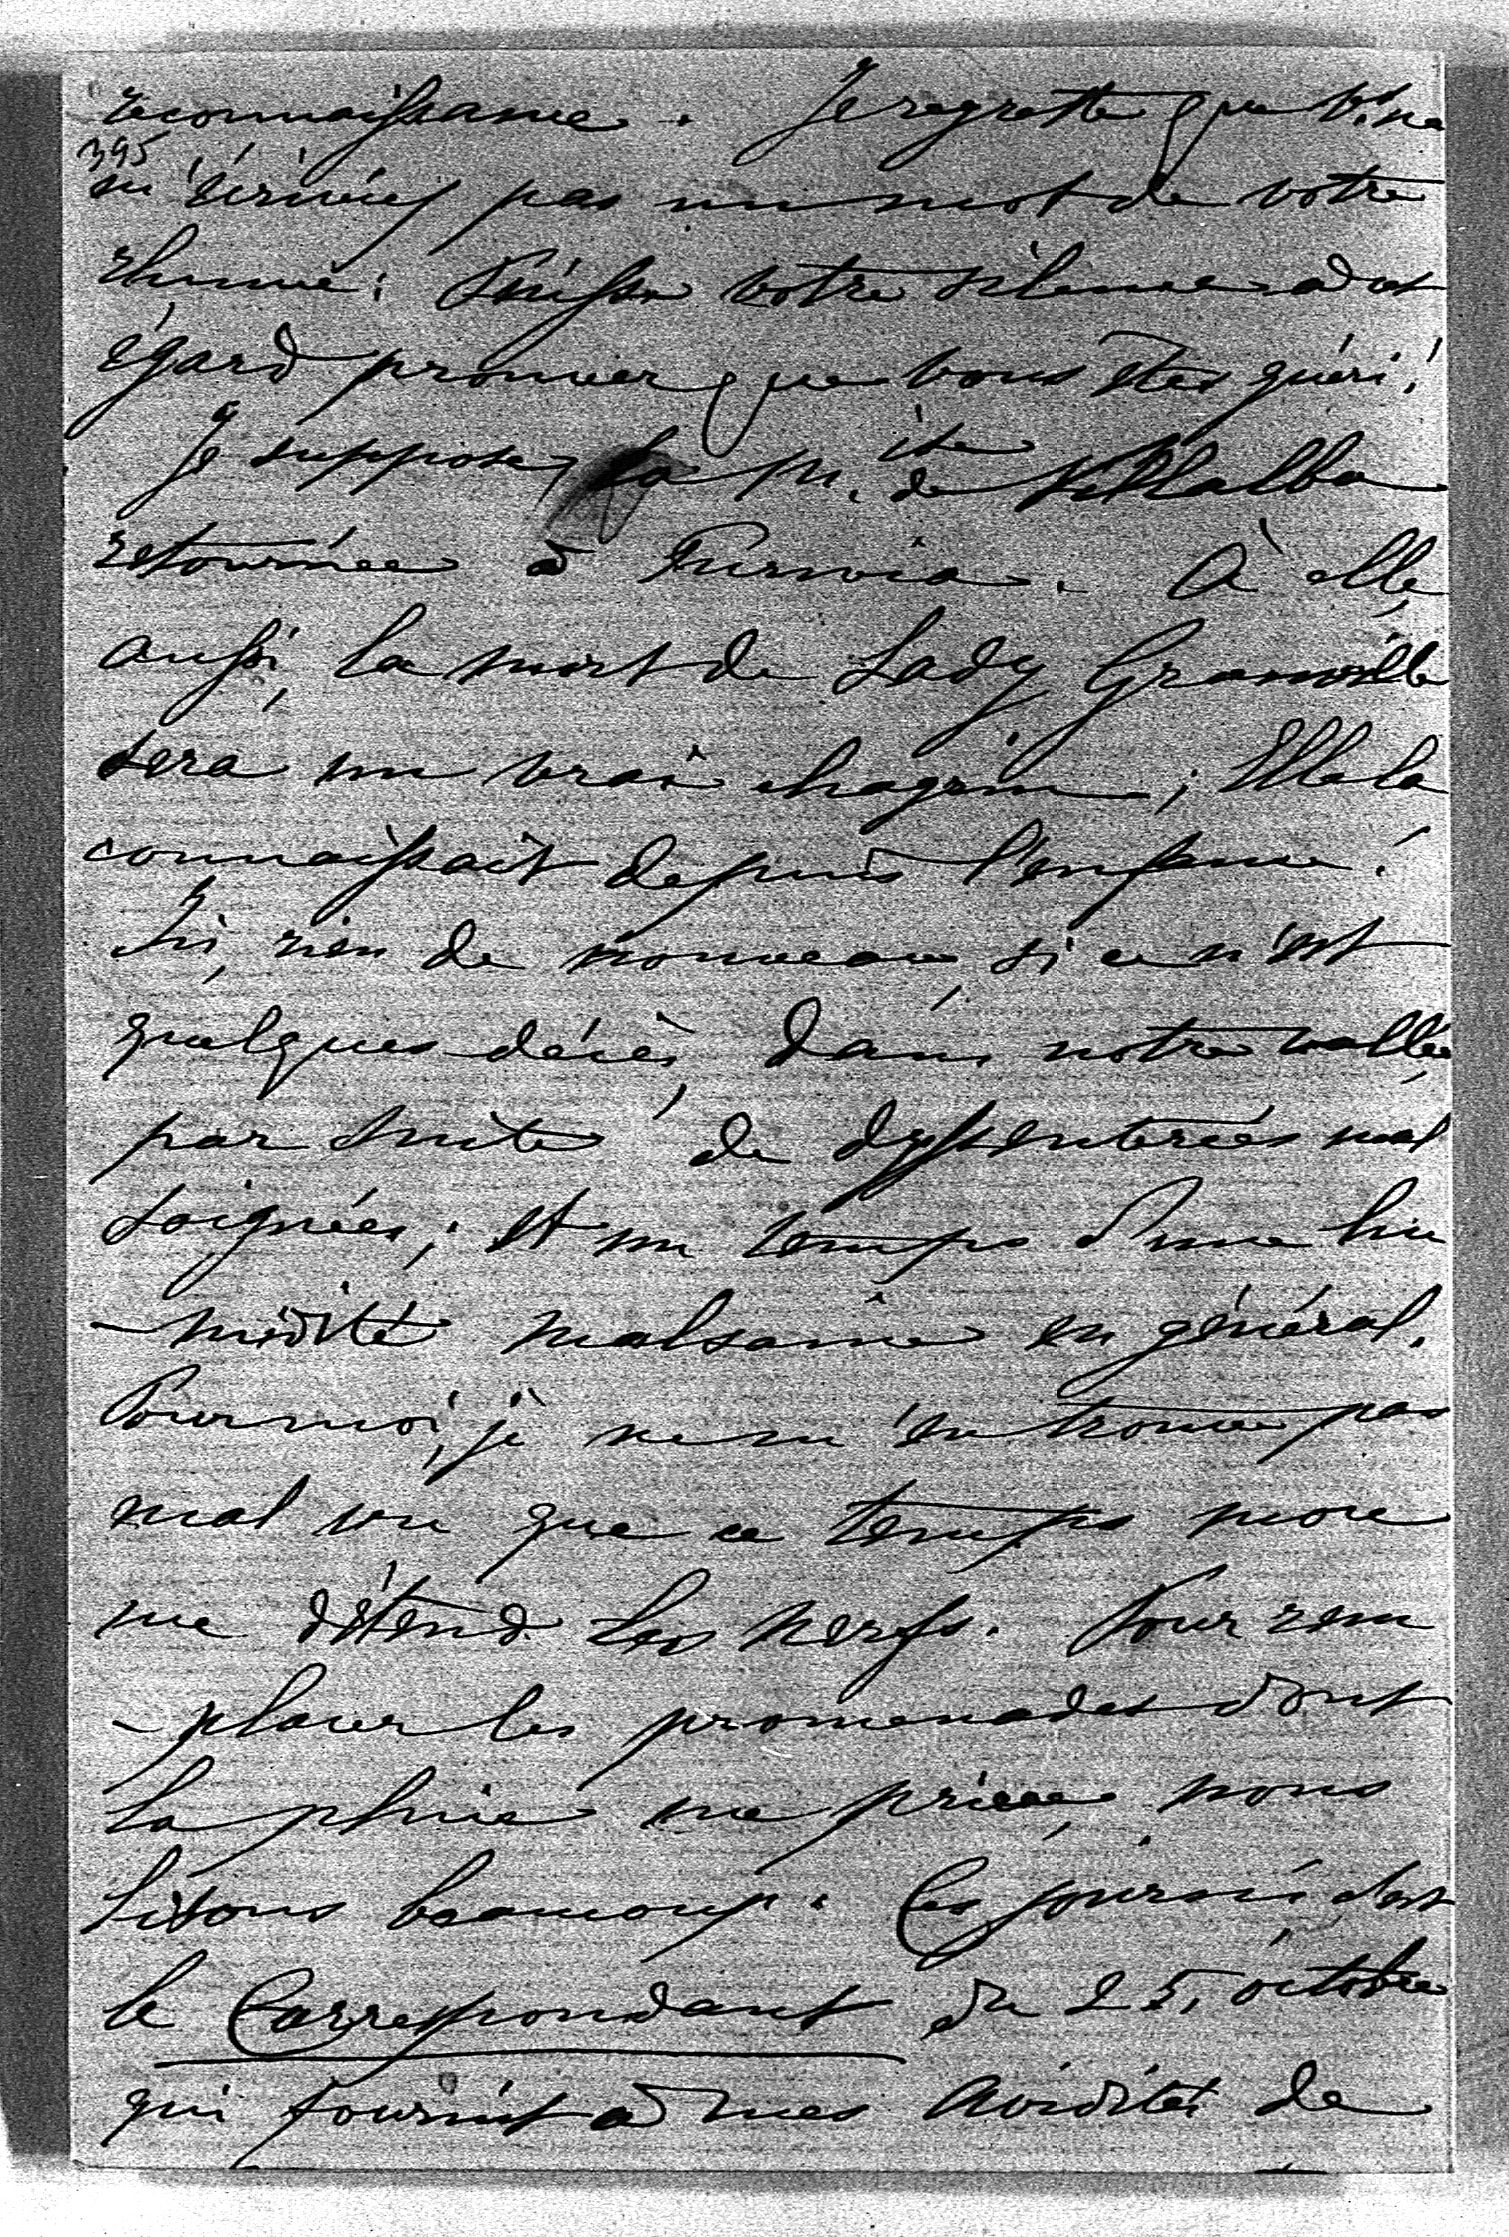 reconnaissance. Je regrette que V. ne
395
m'écriviez pas un mot de votre
rhume: Puisse votre silence à cet
égard prouver que vous êtes guéri!
Je suppose, la M.ise de Villalba
retournée à Turin. À elle
aussi, la mort de Lady Granville
sera un vrai chagrin; Elle la
connaissait depuis l'enfance!
Ici, rien de nouveau, si ce n'est
quelques décès, dans notre vallée,
par suite de dyssenteries mal
soignées; et un temps d'une hu
-midité malsaine en général.
Pour moi, je ne m'en trouve pas
mal vu que ce temps mou
me détend les nerfs. Pour rem
-placer les promenades dont
la pluie me prive, nous
lisons beaucoup. Ces jours-ci c'est
le Correspondant du 25, octobre
qui fournit à mes avidités de